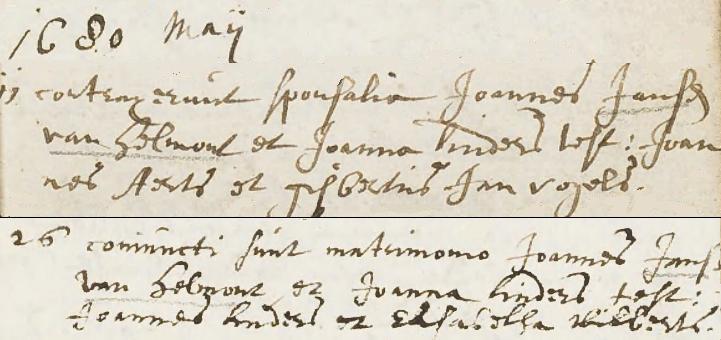 1680 Maij
11 contraxerunt sponsalia Joannes Jansen
van helmont et Joanna Linders test: Joan
nes Aerts et gisbertus Jan vogels.
26 coniuncti sunt matrimonio Joannes Jans
van helmont et Joanna Linders test:
Joannes Linders et Elisabetha Wilberts.